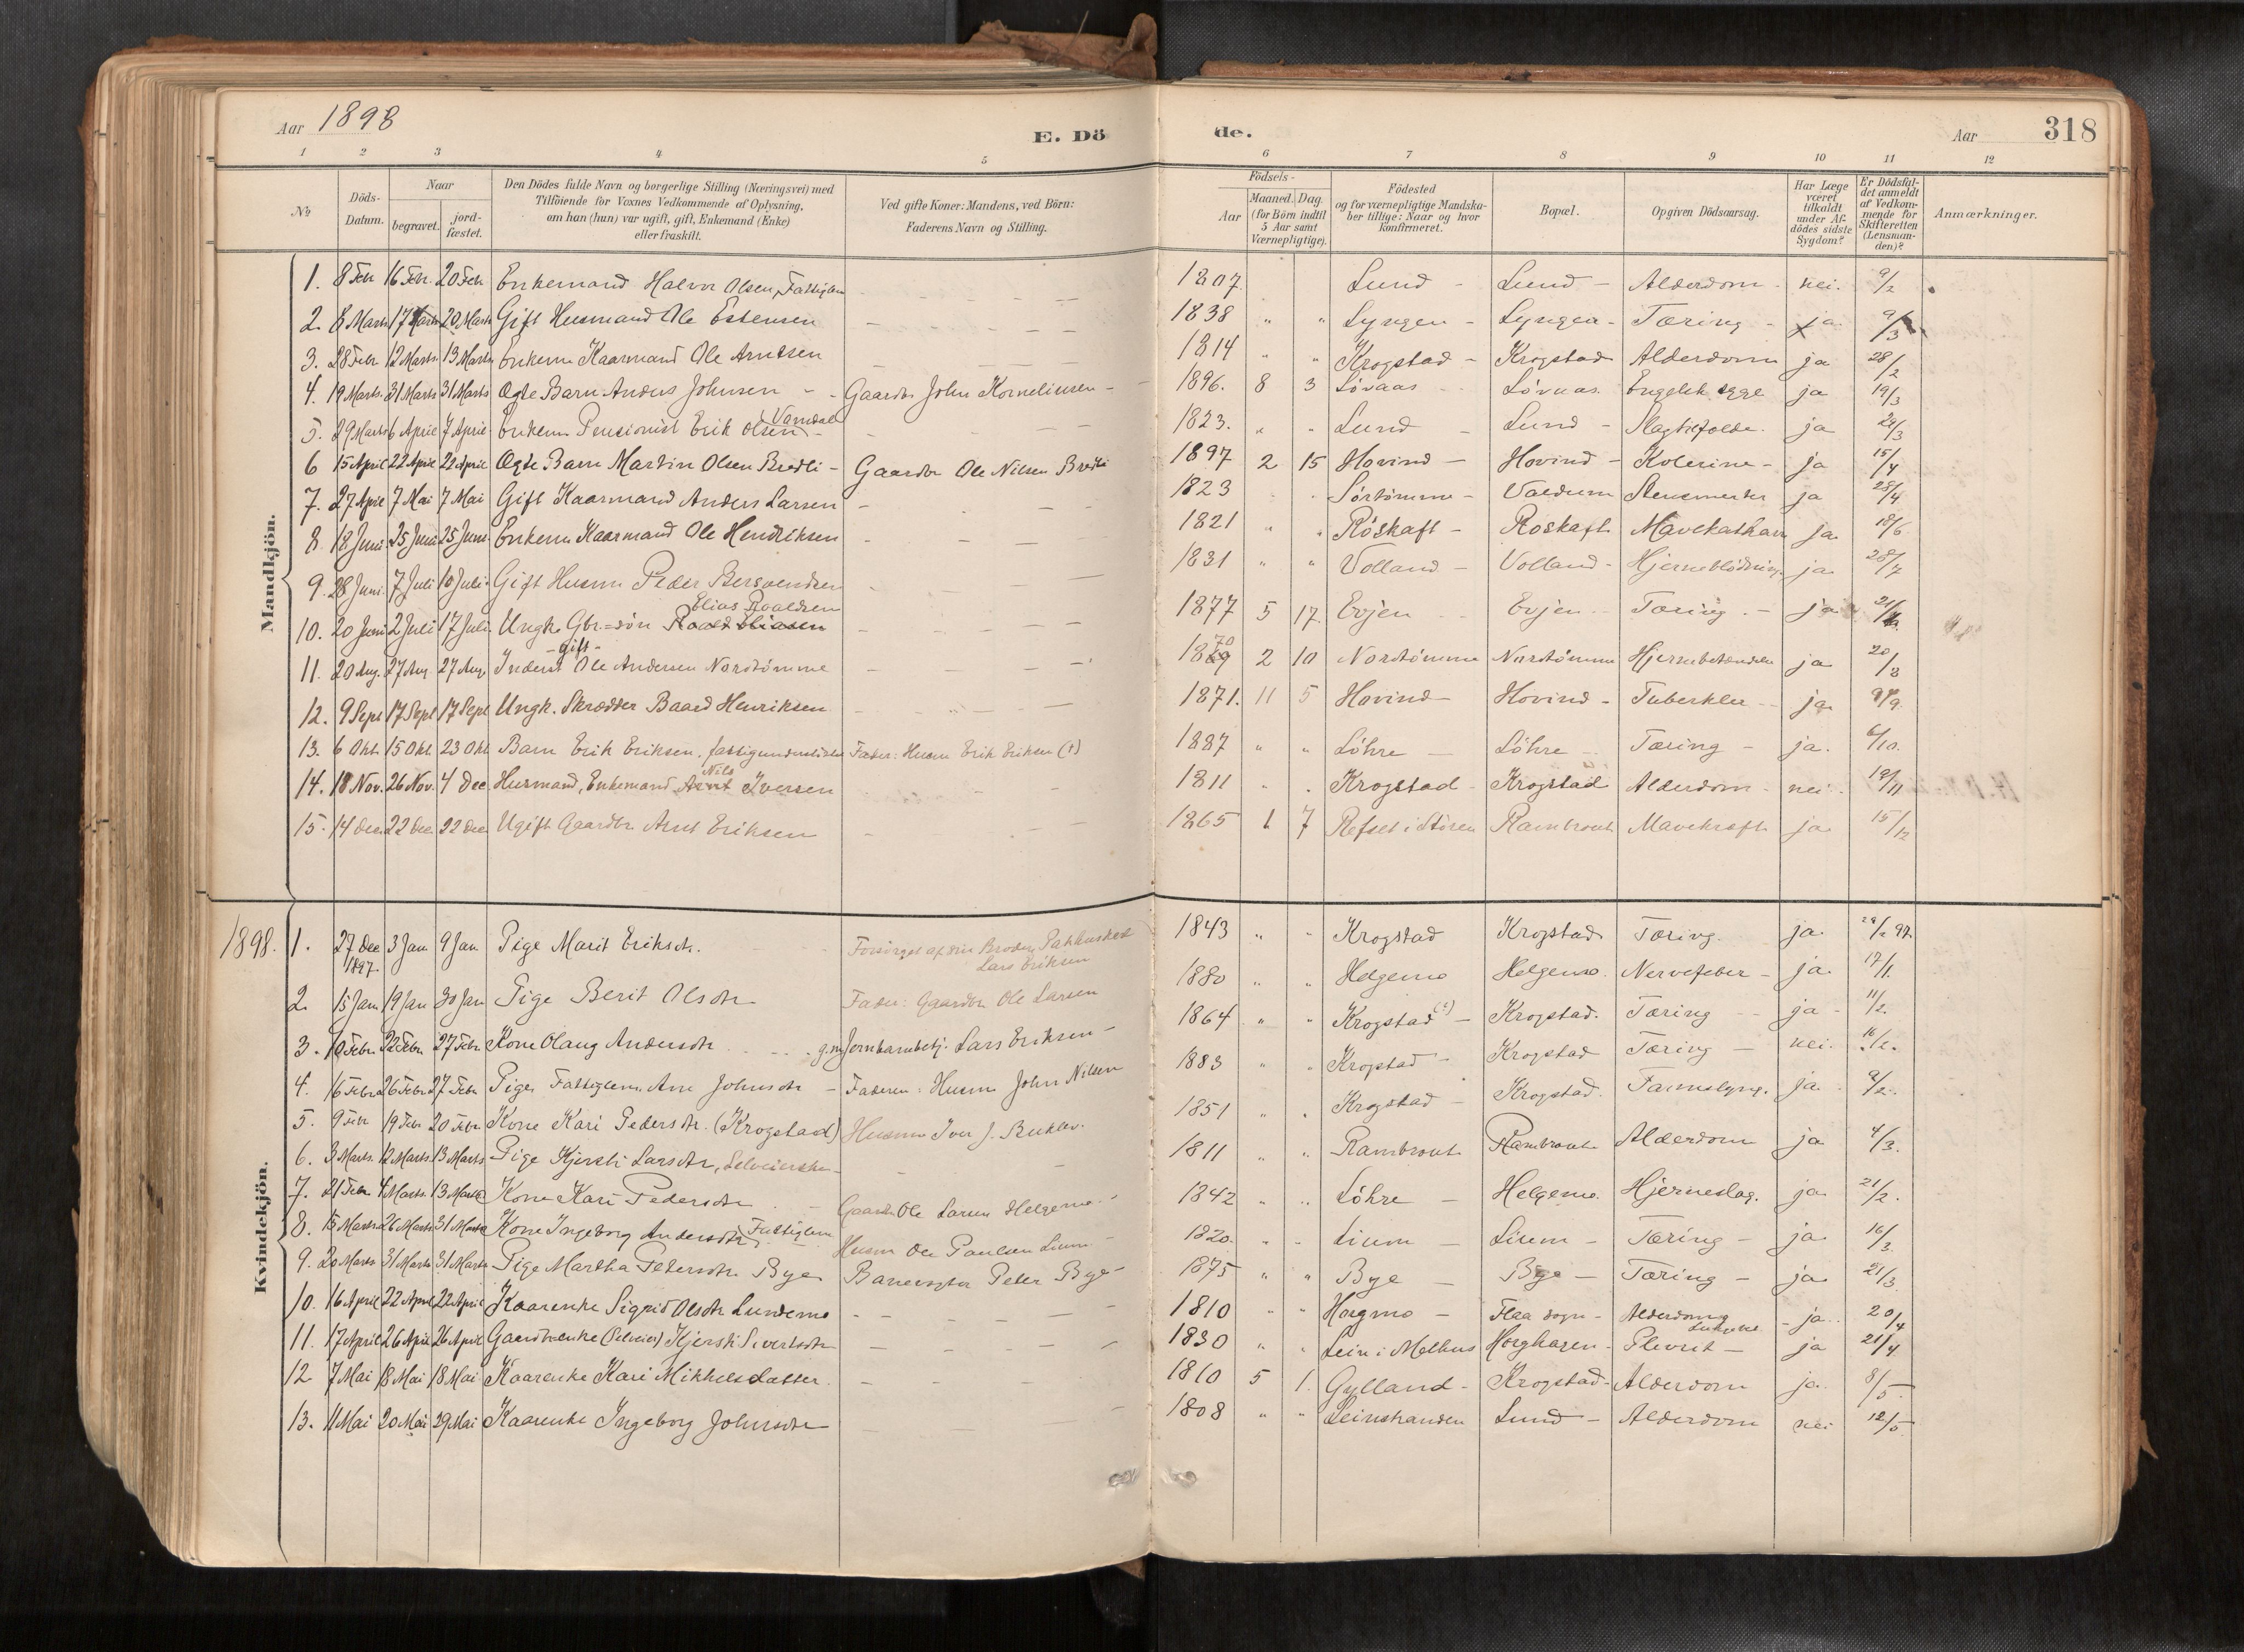 Aar 1898 E. Dö de. Aar 318
1 2 3 4 5 6 7 8 9 10 11 12
No
Döds-Datum.
Naar
begravet.
jord-fæstet.
Den Dödes fulde Navn og borgerlige Stilling (Næringsvei) med
Tilföiende for Voxnes Vedkommende af Oplysning,
om han (hun) var ugift, gift, Enkemand (Enke)
eller fraskilt.
Ved gifte Koner: Mandens, ved Börn:
Faderens Navn og Stilling.
Födsels-
Aar
Maaned. Dag.
(for Börn indtil
5 Aar samt
Værnepligtige).
Födested
og for værnepligtige Mandska-
ber tillige: Naar og hvor
konfirmeret.
Bopæl.
Opgiven Dödsaarsag.
Har Læge
været
tilkaldt
under Af-
dödes sidste
Sygdom?
Er Dödsfal-
det anmeldt
af Vedkom-
mende for
Skifteretten
(Lensman-
den)?
Anmærkninger.
Mandkjön.
1. 8 Febr 16 Febr. 20 Febr Enkemand Halvor Olsen, Fattiglem 1807. Lund - Lund - Alderdom - nei. 9/2
2. 8 Marts 17 Marts 20 Marts Gift Husmand Ole Estensen 1838 " " Lyngen - Lyngen - Tæring - ja 9/3
3. 28 Febr. 12 Marts. 13 Marts Enkem Kaarmand Ole Arntsen 1814 " " Krogstad - Krogstad Alderdom ja 28/2
4. 19 Marts. 31 Marts 31 Marts Ægte Barn Anders Johnsen - Gaardbr John Korneliusen - 1896. 8 3 Lövaas Lövaas. Engelsk syge ja 19/3
5. 29 Marts 6 April 7 April Enkem Pensionist Erik Olsen Vamdal - 1823. " " Lund - Lund - Slagtilfælde. ja 29/3
6 15 April 22 April 22 April Ægte Barn Martin Olsen Bredli - Gaardbr Ole Nilsen Bredli 1897 2 15 Hovind - Hovind - Kolerine - ja 15/4
7. 27 April 7 Mai 7 Mai Gift Kaarmand Anders Larsen - 1823 Sörtömme - Valdum Stensmerter ja 28/4
8. 18 Juni. 25 Juni 25 Juni. Enkem Kaarmand Ole Hendriksen 1821 " " Röskaft - Roskaft Mavekathar ja 18/6
9. 28 Juni. 7 Juli 10 Juli. Gift Husm Peder Bersvendsen 1831 " " Volland - Volland - Hjerneblödning. ja 28/7
10. 20 Juni 2 Juli 17 Juli Ungk. Gbr=sön Roald Eliasen Elias Roaldsen 1877 5 17. Evjen Evjen Tæring. - ja
11. 20 Aug. 27 Aug 27 Aug. Inderst -gift- Ole Andersen Nordtömme 2 10 Nordtömme Nordtömme Hjernebetændelse ja 20/8
12. 9 Sept 17 Sept 17 Sept Ungk. Skrædder Baard Henriksen 1871. 11 5 Hovind - Hovind - Tuberkler - ja 9/9
13. 6 Okt. 15 Okt. 23 Okt Barn Erik Eriksen, fattigunderstöttet Fader: Husm Erik Eriksen (+) 1887 " " Löhre - Löhre - Tæring - ja. 6/10.
14. 18 Nov. 26 Nov. 4 Dec Husmand, Enkemand Arnt Nils Iversen 1811 Krogstad - Krogstad Alderdom - nei. 18/11
15. 14 Dec. 22 Dec. 22 Dec Ugift Gaardbr. Arnt Eriksen 1865 1 7 Refset i Stören Rambraut Mavekræft ja 15/12
Kvindekjön.
1898. 1. 27 Dec 1897. 3 Jan 9 Jan Pige Marit Eriksdtr. Forsörget af sin Broder, Pakhuskarl Lars Eriksen 1843 " " Krogstad Krogstad Tæring. ja
2. 15 Jan 19 Jan 30 Jan Pige Berit Olsdtr Fader: Gaardbr Ole Larsen 1880 " " Helgemo Helgemo. Nervefeber - ja. 17/1.
3. 10 Febr. 22 Febr. 27 Febr. Kone Olaug Andersdtr g.m. Jernbanebetj. Lars Eriksen - 1864 " " Krogstad (?) - Krogstad. Tæring ja - 11/2.
4. 16 Febr 26 Febr 27 Febr Pige, Fattiglem Ane Johnsdtr - Faderen: Husm John Nilsen 1883 " " Krogstad - Krogstad Tæring - nei. 16/2.
5. 9 Febr 19 Febr 20 Febr Kone Kari Pedersdtr. (Krogstad) Husm Iver J. Buklev. 1851 " " Krogstad - Krogstad. Tarmslyng. ja 9/2.
6. 3 Marts. 12 Marts. 13 Marts Pige Kjersti Larsdtr, Selveierske - 1811 " " Rambraut Rambraut Alderdom ja 4/3.
7. 21 Febr 4 Marts. 13 Marts Kone Kari Pedersdtr. - Gaardbr Ole Larsen Helgemo - 1842 " " Löhre - Helgemo. Hjerneslag. ja 21/2.
8. 15 Marts 26 Marts 31 Marts Kone Ingeborg Andersdtr, Fattiglem Husm Ole Paulsen Lium - 1820. " " Lium - Lium - Tæring - ja 16/3
9. 20 Marts 31 Marts 31 Marts Pige Martha Petersdtr Bye Banevogter Peter Bye - 1875 " " Bye - Bye - Tæring - ja 21/3.
10. 16 April 22 April 22 April Kaarenke Sigrid Olsdtr Lundemo 1810 " " Horgmo - Flaa sogn - Alderdom - ja. 20/4
11. 17 April 26 April 26 April Gaardbrenke (Selveier) Kjersti Sivertsdtr 1830 " " Lein i Melhus Horghagen - Plevrit - ja 21/4
12 7 Mai 18 Mai 18 Mai Kaarenke Kari Mikkelsdatter. 1810 5 1. Gylland - Krogstad - Alderdom ja. 8/5.
13. 11 Mai 20 Mai 29 Mai Kaarenke Ingeborg Johnsdtr 1808 " " Leinstranden Lund - Alderdom nei 12/5